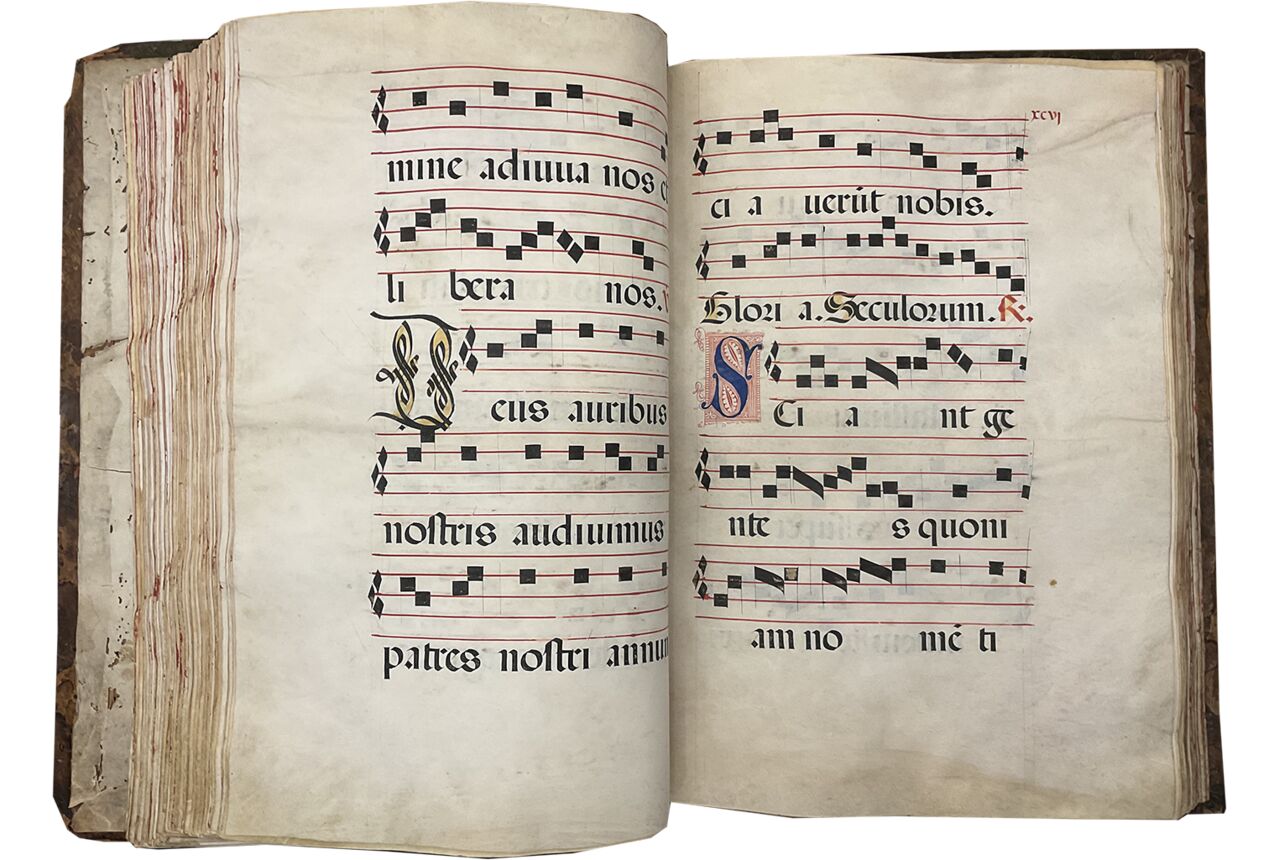 mine adiuua nos et
li bera nos. V
Deus auribus
nostris audiuimus
patres nostri annun
xcvj
ci a uerūt nobis.
Glori a. Seculorum. R.
S Ci a nt ge
nte s quoni
am no mē ti